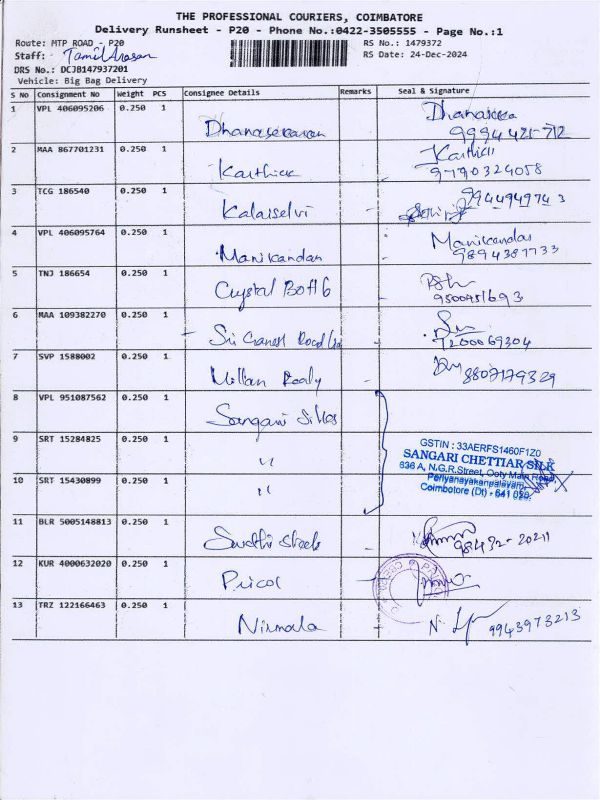 THE PROFESSIONAL COURIERS, COIMBATORE
Delivery Runsheet - P20 - Phone No.:0422-3505555 - Page No.:1
Route: MTP ROAD - P20 RS No.: 1479372
Staff: Tamil Arasan RS Date: 24-Dec-2024
DRS No.: DCJB147937201
Vehicle: Big Bag Delivery
S No Consignment No Weight PCS Consignee Details Remarks Seal & Signature
1 VPL 406095206 0.250 1 Dhanasekaran
9994421-712
2 MAA 867701231 0.250 1 Karthick Karthick
9790324058
3 TCG 186540 0.250 1 Kalaiselvi 9944949743
4 VPL 406095764 0.250 1 Manikandan Manikandan
9894387733
5 TNJ 186654 0.250 1 Crystal
9500951693
6 MAA 109382270 0.250 1 Sri Ganesh
7200069304
7 SVP 1588002 0.250 1 Millan Ready 8807179329
8 VPL 951087562 0.250 1 Sangari Silks
9 SRT 15284825 0.250 1 "
GSTIN : 33AERFS1460F1Z0
SANGARI CHETTIAR SILK
636 A, N.G.R.Street, Ooty Main Road,
Periyanayakanpalayam,
Coimbotore (Dt) - 641 020.
10 SRT 15430899 0.250 1 "
11 BLR 5005148813 0.250 1 Sudhi Steels 98432-20211
12 KUR 4000632020 0.250 1 Pricol
13 TRZ 122166463 0.250 1 Nirmala 9943973213